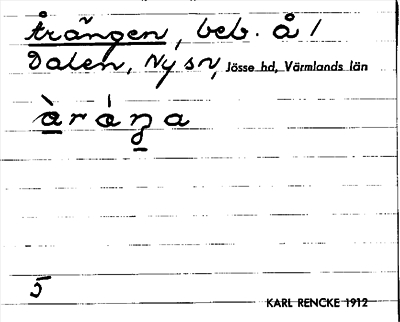 Årängen, beb. å 1
Dalen, Ny sn, Jösse hd, Värmlands län
àráŋa
5
KARL RENCKE 1912